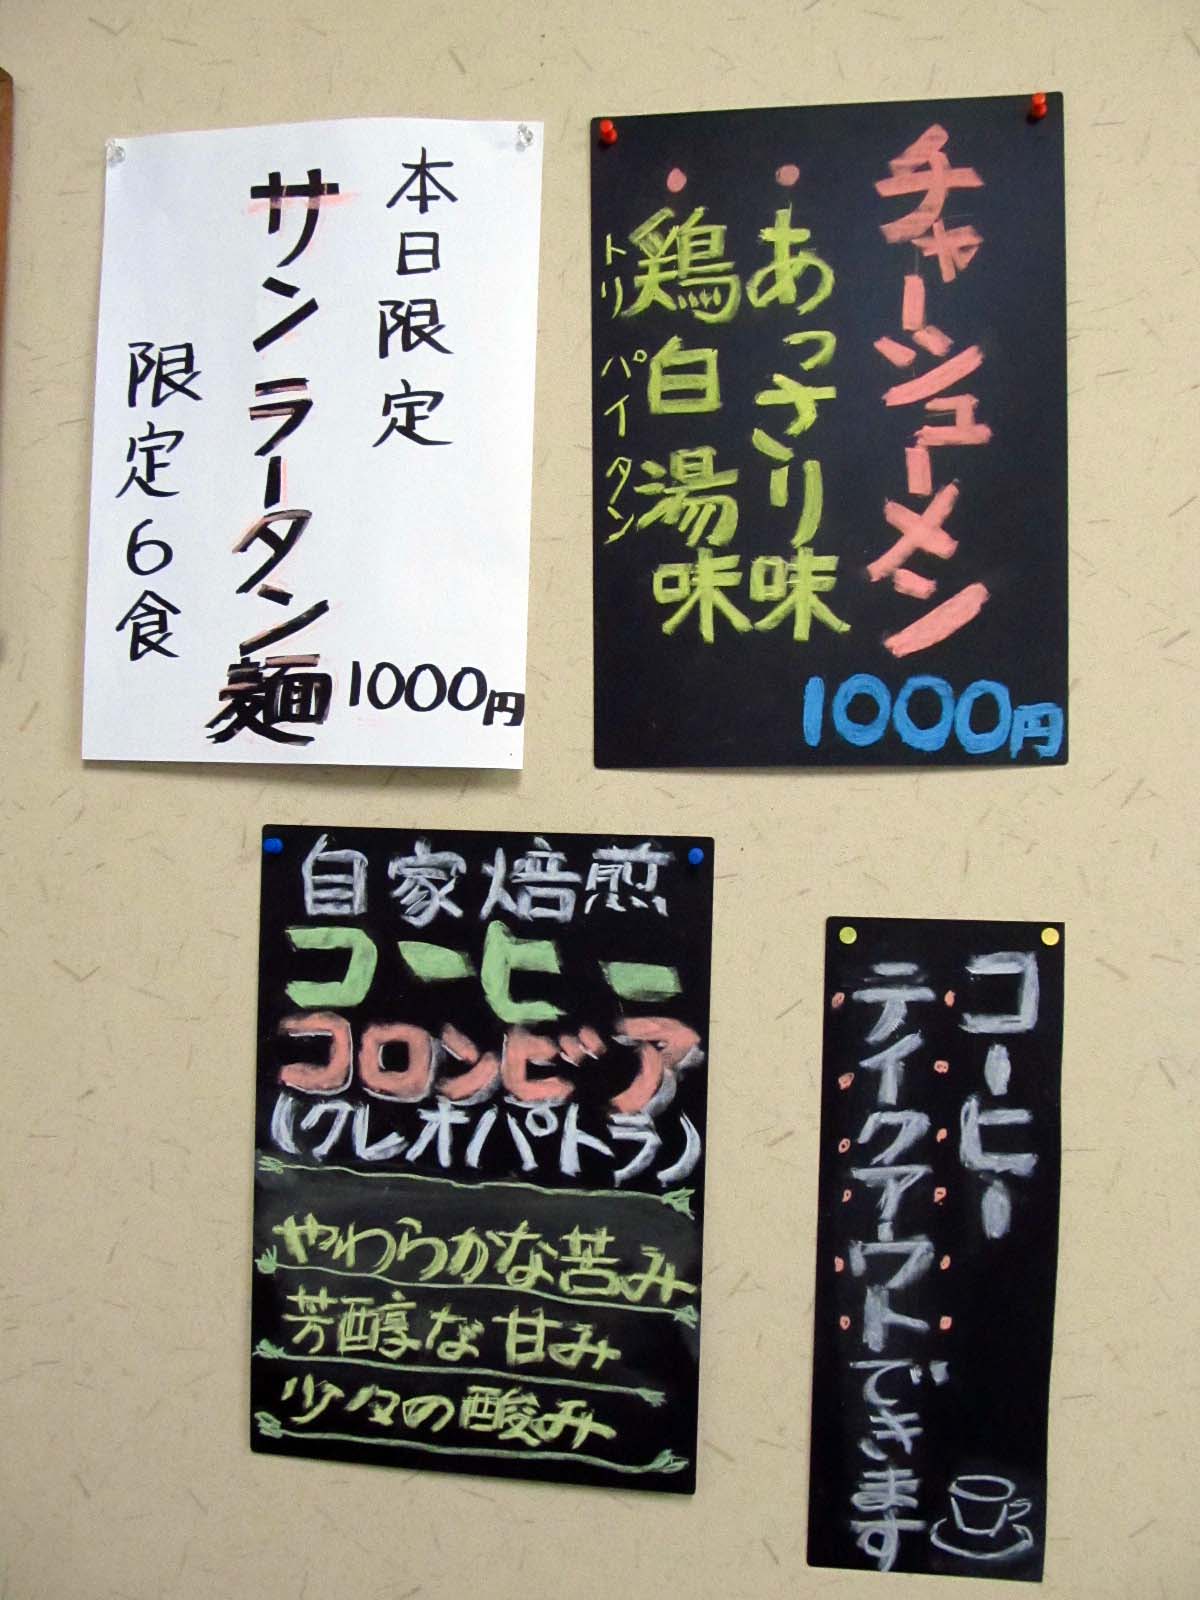 本日限定
サンラータン麺
1000円
限定6食
チャーシューメン
・あっさり味
・鶏白湯味
トリ パイタン
1000円
自家焙煎
コーヒー
コロンビア
(クレオパトラ)
やわらかな苦み
芳醇な甘み
少々の酸み
コーヒー
テイクアウトできます